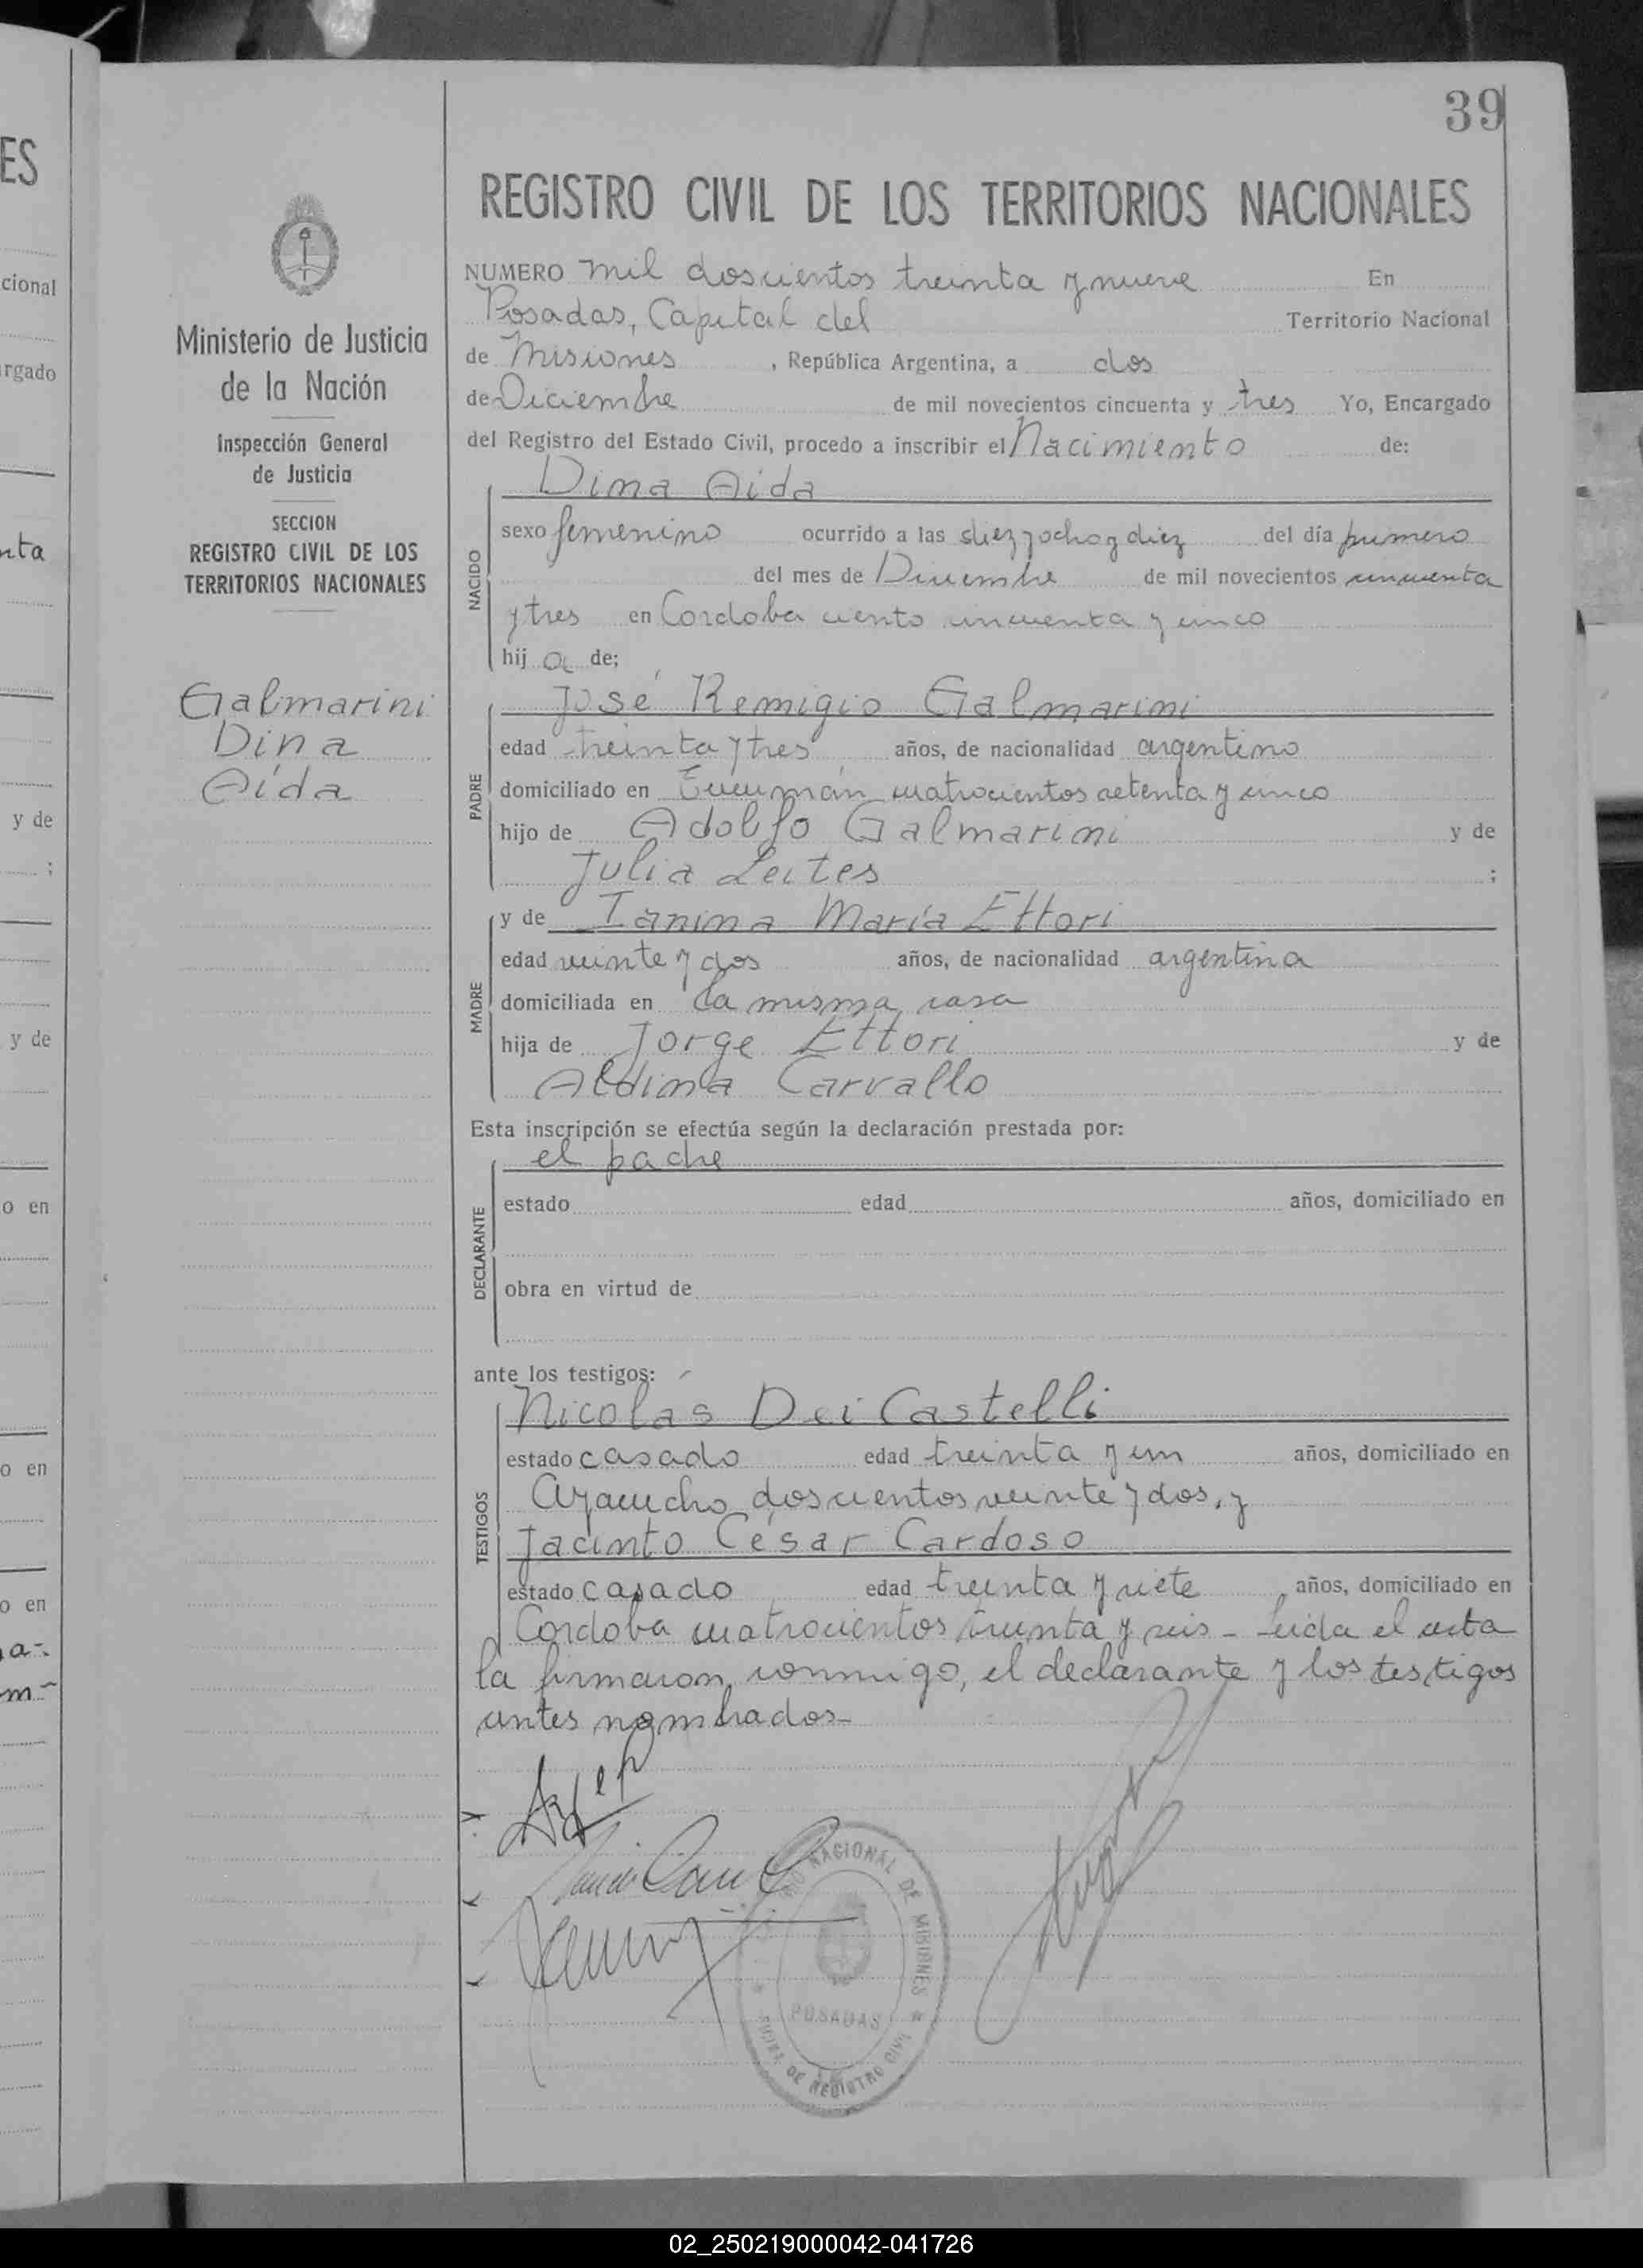 39
ES
cional
rgado
nta
y de
;
y de
o en
o en
o en
a-.
m-
Ministerio de Justicia
de la Nación
Inspección General
de Justicia
SECCION
REGISTRO CIVIL DE LOS
TERRITORIOS NACIONALES
Galmarini
Dina
Aída
REGISTRO CIVIL DE LOS TERRITORIOS NACIONALES
NUMERO mil doscientos treinta y nueve En
Posadas, Capital del Territorio Nacional
de Misiones, República Argentina, a dos
de Diciembre de mil novecientos cincuenta y tres Yo, Encargado
del Registro del Estado Civil, procedo a inscribir el Nacimiento de:
Dina Aida
NACIDO
sexo femenino ocurrido a las diez y ocho y diez del día primero
del mes de Diciembre de mil novecientos cincuenta
y tres en Cordoba ciento cincuenta y cinco
hij a de;
José Remigio Galmarini
PADRE
edad treinta y tres años, de nacionalidad argentino
domiciliado en Tucumán cuatrocientos setenta y cinco
hijo de Adolfo Galmarini y de
Julia Leites ;
y de Ianina María Ettori
MADRE
edad veinte y dos años, de nacionalidad argentina
domiciliada en la misma casa
hija de Jorge Ettori y de
Aldina Carvallo
Esta inscripción se efectúa según la declaración prestada por:
el padre
DECLARANTE
estado edad años, domiciliado en
obra en virtud de
ante los testigos:
Nicolás Dei Castelli
TESTIGOS
estado casado edad treinta y un años, domiciliado en
Ayacucho doscientos veinte y dos, y
Jacinto César Cardoso
estado casado edad treinta y siete años, domiciliado en
Cordoba cuatrocientos treinta y seis - Leida el acta
la firmaron conmigo, el declarante y los testigos
antes nombrados-
NACIONAL DE MISIONES
POSADAS
DE REGISTRO CIVIL
02_250219000042-041726